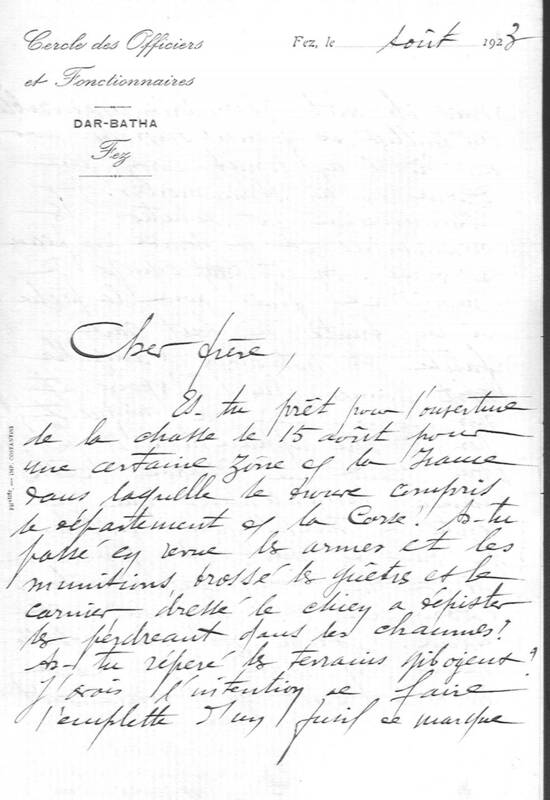 Cercle des Officiers
et Fonctionnaires
DAR-BATHA
Fez
Fez, le août 1923
Cher frère,
Es-tu prêt pour l'ouverture
de la chasse le 15 août pour
une certaine zône de la France
dans laquelle se trouve compris
le département de la Corse? As-tu
passé en revue les armes et les
munitions, brossé les guêtres et le
carnier dressé le chien a dépister
les perdreaux dans les chaumes?
As-tu repéré les terrains giboyeux?
J'avais l'intention de faire
l'emplette d'un fusil de marque
IMP. COSTANTINI